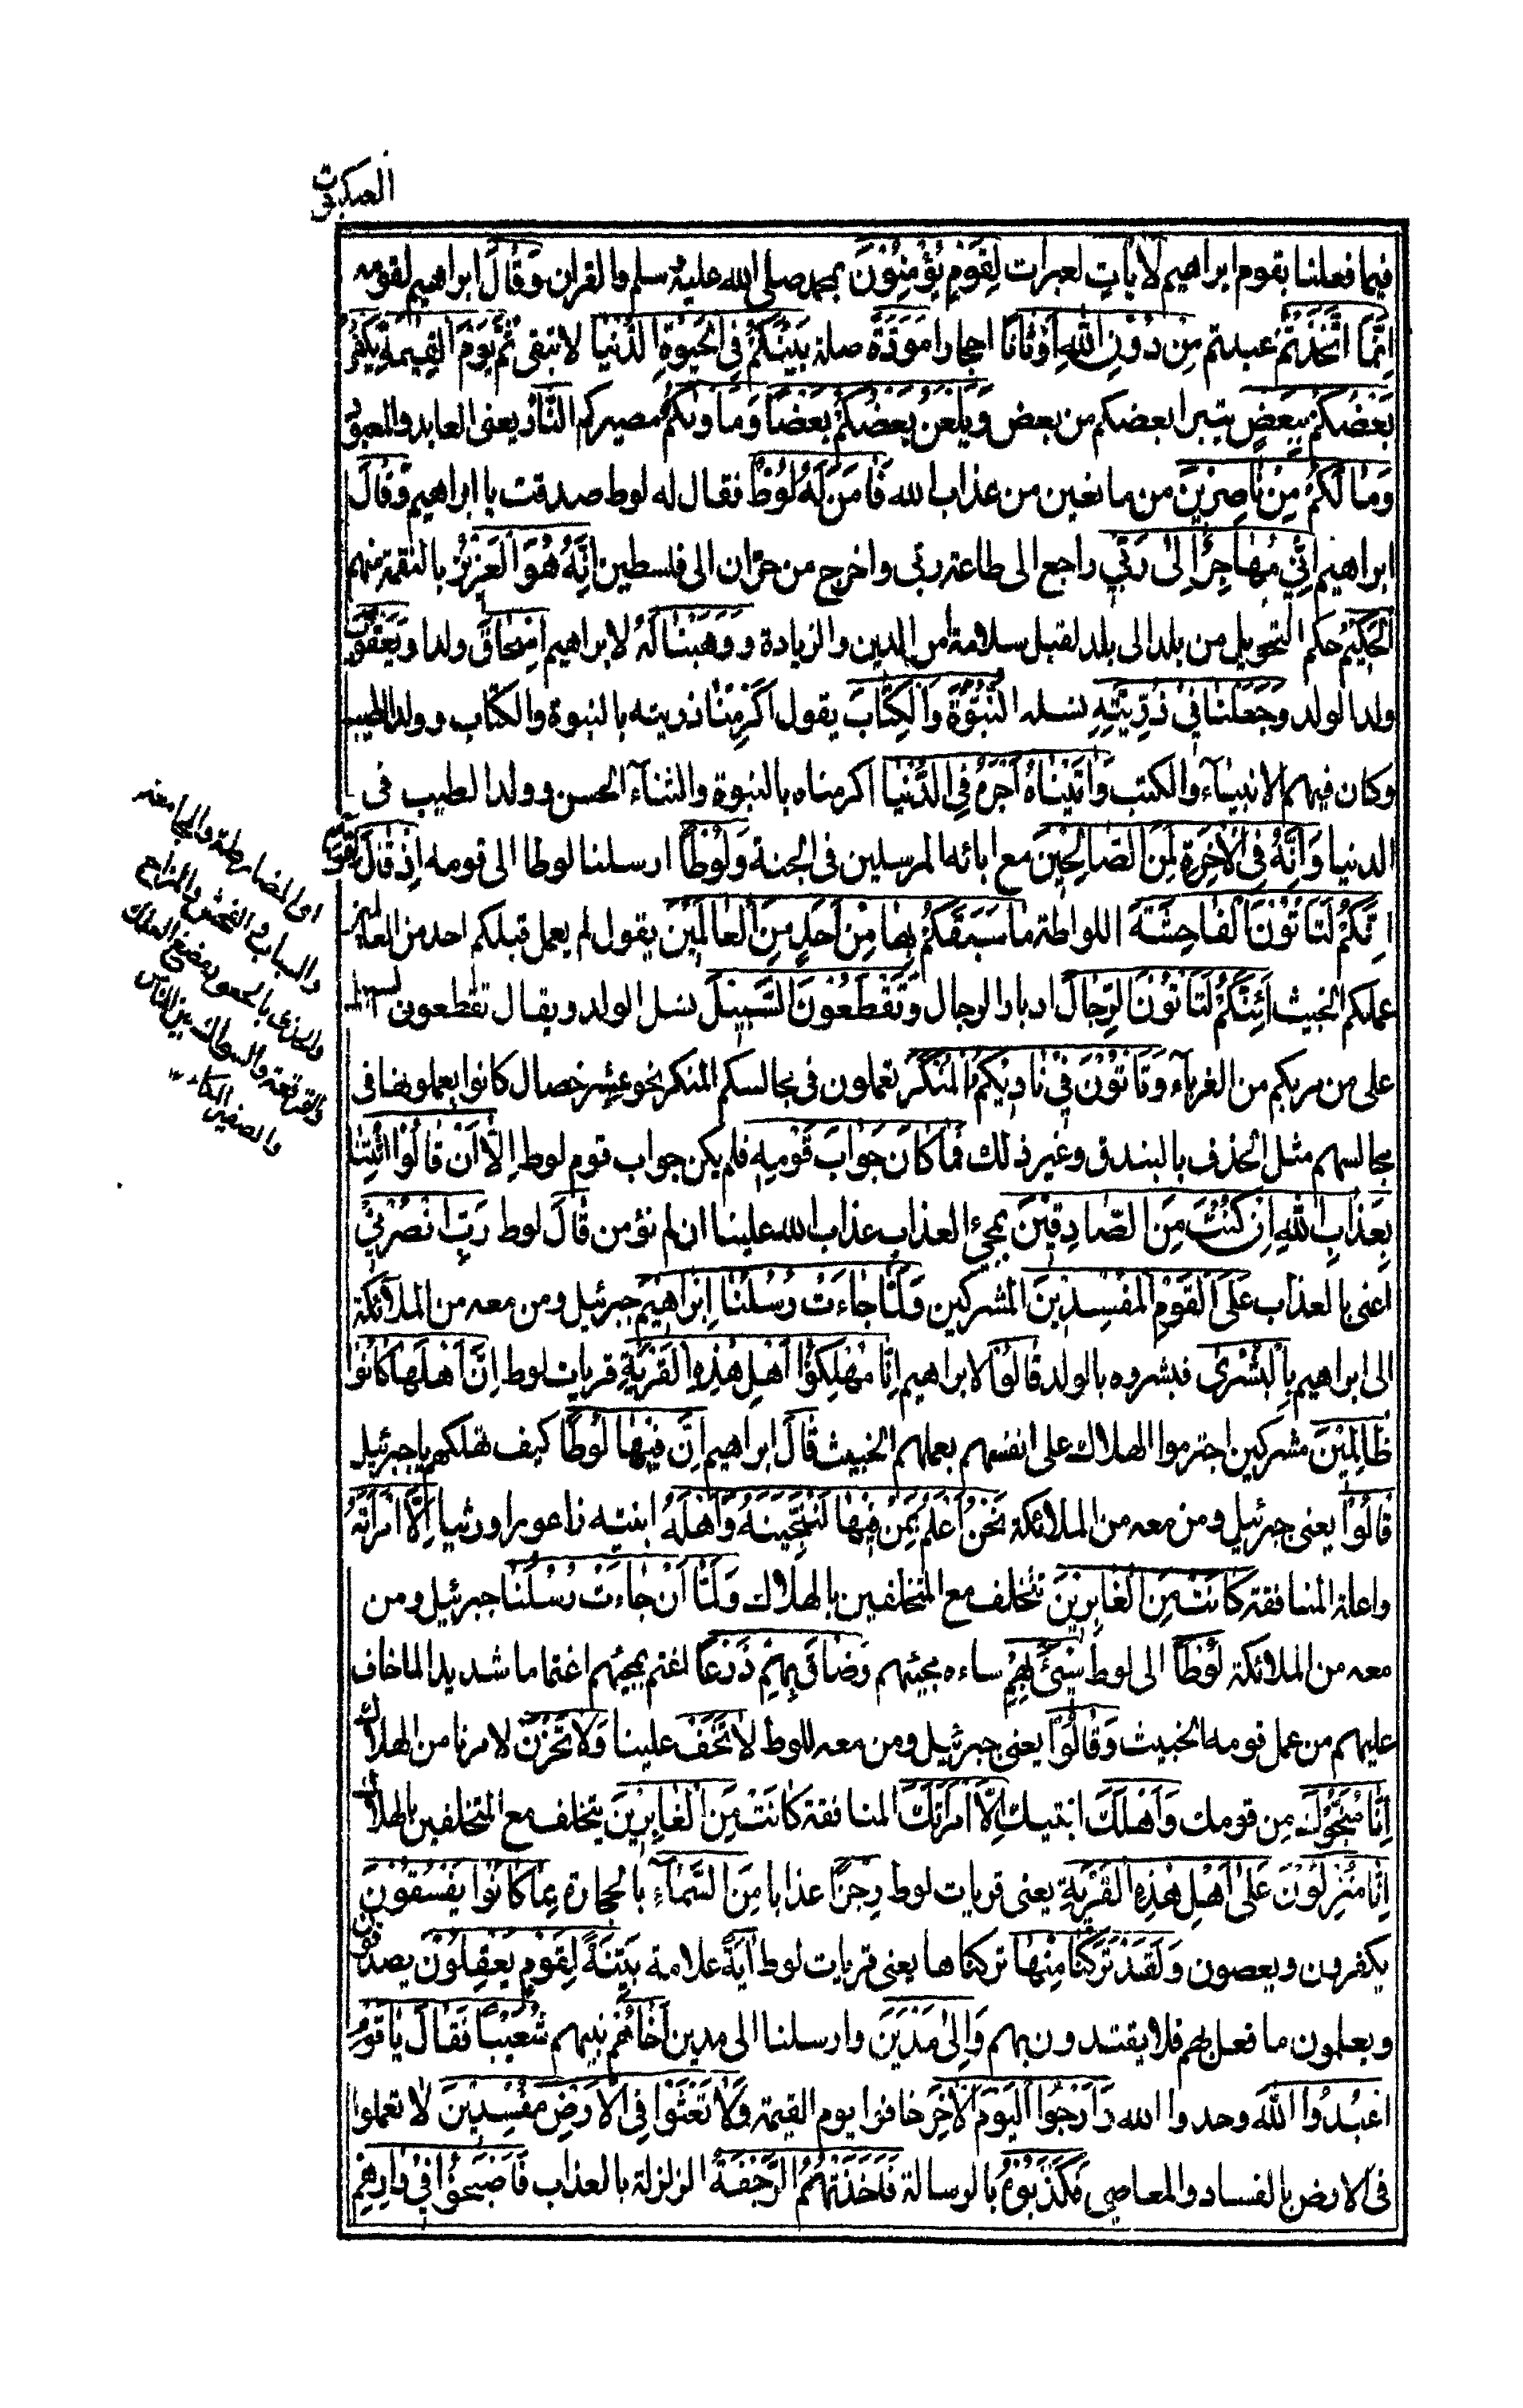 العنكبوت
فيما فعلنا بقوم ابراهيم لَاٰيَاتٍ لعبرات لِقَوْمٍ يُؤْمِنُوْنَ بمحمد صلى الله عليه وسلم والقران وَقَالَ ابراهيم لقومه
اِنَّمَا اتَّخَذْتُمْ عبدتم مِنْ دُوْنِ اللّٰهِ اَوْثَانًا احجارا مَوَدَّةَ صلة بَيْنَكُمْ فِى الْحَيٰوةِ الدُّنْيَا لا تبقى ثُمَّ يَوْمَ الْقِيٰمَةِ يَكْفُرُ
بَعْضُكُمْ بِبَعْضٍ يتبرا بعضكم من بعض وَيَلْعَنُ بَعْضُكُمْ بَعْضًا وَمَاْوٰىكُمُ مصيركم النَّارُ يعنى العابد والمعبود
وَمَا لَكُمْ مِنْ نَاصِرِيْنَ من مانعين من عذاب الله فَاٰمَنَ لَهُ لُوْطٌ فقال له لوط صدقت يا ابراهيم وَقَالَ
ابراهيم اِنِّيْ مُهَاجِرٌ اِلٰى رَبِّيْ راجع الى طاعة ربى واخرج من حران الى فلسطين اِنَّهُ هُوَ الْعَزِيْزُ بالنقمة منهم
الْحَكِيْمُ حكم التحويل من بلد الى بلد لقبل سلامة امر الدين والزيادة وَوَهَبْنَا لَهُ لابراهيم اِسْحَاقَ ولدا وَيَعْقُوْبَ
ولد الولد وَجَعَلْنَا فِيْ ذُرِّيَّتِهِ نسله النُّبُوَّةَ وَالْكِتَابَ يقول اكرمنا ذريته بالنبوة والكتاب وولد الطيب
وكان فيهم الانبياء والكتب وَاٰتَيْنَاهُ اَجْرَهُ فِى الدُّنْيَا اكرمناه بالنبوة والثناء الحسن وولد الطيب فى
الدنيا وَاِنَّهُ فِى الْاٰخِرَةِ لَمِنَ الصَّالِحِيْنَ مع ابائه المرسلين فى الجنة وَلُوْطًا ارسلنا لوطا الى قومه اِذْ قَالَ لِقَوْمِهِ
اِنَّكُمْ لَتَاْتُوْنَ الْفَاحِشَةَ اللواطة مَا سَبَقَكُمْ بِهَا مِنْ اَحَدٍ مِنَ الْعَالَمِيْنَ يقول لم يعمل قبلكم احد من العالمين
عملكم الخبيث اَئِنَّكُمْ لَتَاْتُوْنَ الرِّجَالَ ادبار الرجال وَتَقْطَعُوْنَ السَّبِيْلَ نسل الولد ويقال تقطعون السبيل
على من مر بكم من الغرباء وَتَاْتُوْنَ فِيْ نَادِيْكُمُ الْمُنْكَرَ تعملون فى مجالسكم المنكر نحو عشر خصال كانوا يعملونها فى
مجالسهم مثل الخذف بالبندق وغير ذلك فَمَا كَانَ جَوَابَ قَوْمِهِ فلم يكن جواب قوم لوط اِلَّا اَنْ قَالُوا ائْتِنَا
بِعَذَابِ اللّٰهِ اِنْ كُنْتَ مِنَ الصَّادِقِيْنَ بمجئ العذاب عذاب الله علينا ان لم نؤمن قَالَ لوط رَبِّ انْصُرْنِيْ
اعنى بالعذاب عَلَى الْقَوْمِ الْمُفْسِدِيْنَ المشركين وَلَمَّا جَاءَتْ رُسُلُنَا اِبْرَاهِيْمَ جبرئيل ومن معه من الملائكة
الى ابراهيم بِالْبُشْرٰى فبشروه بالولد قَالُوْا لابراهيم اِنَّا مُهْلِكُوْا اَهْلِ هٰذِهِ الْقَرْيَةِ قريات لوط اِنَّ اَهْلَهَا كَانُوْا
ظَالِمِيْنَ مشركين اجترموا الهلاك على انفسهم بعملهم الخبيث قَالَ ابراهيم اِنَّ فِيْهَا لُوْطًا كيف تهلكهم يا جبرئيل
قَالُوْا يعنى جبرئيل ومن معه من الملائكة نَحْنُ اَعْلَمُ بِمَنْ فِيْهَا لَنُنَجِّيَنَّهُ وَاَهْلَهُ ابنتيه زاعورا وريثا اِلَّا امْرَاَتَهُ
واعلة المنافقة كَانَتْ مِنَ الْغَابِرِيْنَ تتخلف مع المتخلفين بالهلاك وَلَمَّا اَنْ جَاءَتْ رُسُلُنَا جبرئيل ومن
معه من الملائكة لُوْطًا الى لوط سِيْءَ بِهِمْ ساءه مجيئهم وَضَاقَ بِهِمْ ذَرْعًا اغتم بمجيئهم اغتماما شديدا لما خاف
عليهم من عمل قومه الخبيث وَقَالُوْا يعنى جبرئيل ومن معه للوط لَا تَخَفْ علينا وَلَا تَحْزَنْ لامرنا من الهلاك
اِنَّا مُنَجُّوْكَ من قومك وَاَهْلَكَ ابنتيك اِلَّا امْرَاَتَكَ المنافقة كَانَتْ مِنَ الْغَابِرِيْنَ يتخلف مع المتخلفين بالهلاك
اِنَّا مُنْزِلُوْنَ عَلٰى اَهْلِ هٰذِهِ الْقَرْيَةِ يعنى قريات لوط رِجْزًا عذابا مِنَ السَّمَاءِ بالحجارة بِمَا كَانُوْا يَفْسُقُوْنَ
يكفرون ويعصون وَلَقَدْ تَرَكْنَا مِنْهَا تركناها يعنى قريات لوط اٰيَةً علامة بَيِّنَةً لِقَوْمٍ يَعْقِلُوْنَ يصدقون
ويعلمون ما فعل بهم فلا يقتدون بهم وَاِلٰى مَدْيَنَ وارسلنا الى مدين اَخَاهُمْ نبيهم شُعَيْبًا فَقَالَ يَا قَوْمِ
اعْبُدُوا اللّٰهَ وحدوا الله وَارْجُوا الْيَوْمَ الْاٰخِرَ خافوا يوم القيمة وَلَا تَعْثَوْا فِى الْاَرْضِ مُفْسِدِيْنَ لا تعملوا
فى الارض بالفساد والمعاصى فَكَذَّبُوْهُ بالرسالة فَاَخَذَتْهُمُ الرَّجْفَةُ الزلزلة بالعذاب فَاَصْبَحُوْا فِيْ دَارِهِمْ
اولى المضارطة والمجامعة
والسباب فى الفحش والمزاح
بالحصى ومضغ العلك
والفرقعة والسواك بين الناس
والصفير